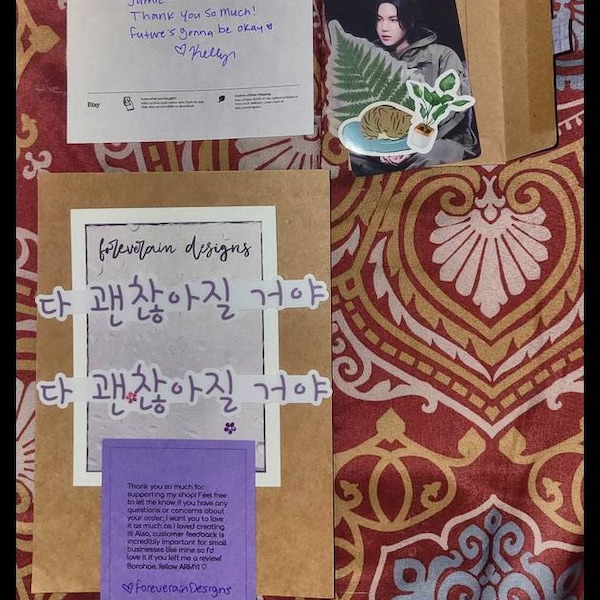 Jamie
Thank you so much!
Future's gonna be okay
Kelly
Etsy
foreverain designs
다 괜찮아질 거야
다 괜찮아질 거야
Thank you so much for
supporting my shop! Feel free
to let me know if you have any
questions or concerns about
your order; I want you to love
it as much as I loved creating
it! Also, customer feedback is
incredibly important for small
businesses like mine so I'd
love it if you left me a review!
Borahae, fellow ARMY! ♡
♡foreverainDesigns